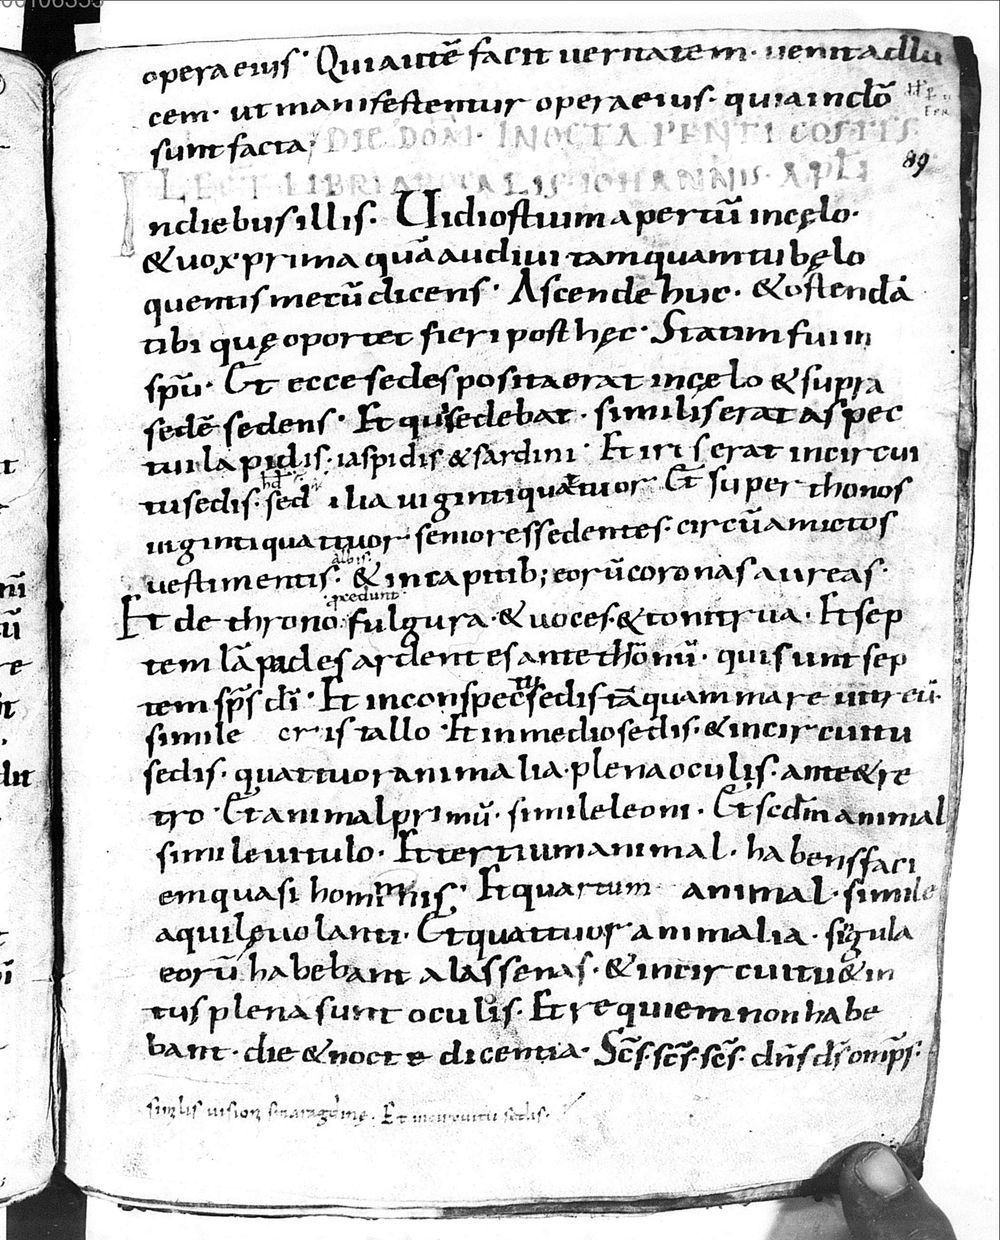 opera eius. Qui autē facit veritatem. venit ad lu
cem. ut manifestentur opera eius. quia in dō
sunt facta; DIE DOM. IN OCTA PENTICOSTES
89
LECT LIBRI APOCALIS IOHANNIS APLI
In diebus illis. Uidi ostium apertū in cęlo.
& vox prima quā audivi tamquam tubę lo
quentis mecū dicens. Ascende huc. & ostendā
tibi quę oportet fieri post hęc. Statim fui in
spū. Et ecce sedes posita erat in cęlo & supra
sedē sedens. Et qui sedebat. similis erat aspec
tui lapidis. iaspidis & sardini. Et iris erat in circui
tu sedis. sedilia viginti quattuor. Et super thonos
viginti quattuor. seniores sedentes. circūamictos
vestimentis albis. & in capitib; eorū coronas aureas.
Et de throno procedunt fulgura. & voces. & tonitrua. Et sep
tem lāpades ardentes ante thronū. qui sunt sep
tem sps dī. Et in conspectu sedis tāquam mare vitreū.
simile cristallo. Et in medio sedis. & in circuitu
sedis. quattuor animalia. plena oculis. ante & re
tro. Et animal primū. simile leoni. Et scdm animal
simile vitulo. Et tertium animal. habens faci
em quasi hominis. Et quartum animal. simile
aquilę volanti. Et quattuor animalia. sigula
eorū habebant alas senas. & in circuitu & in
tus plena sunt oculis. Et requiem non habe
bant. die & nocte dicentia. Scs. scs. scs. dns ds omps.
similis visioni smaragdinę. Et in circuitu sedis.